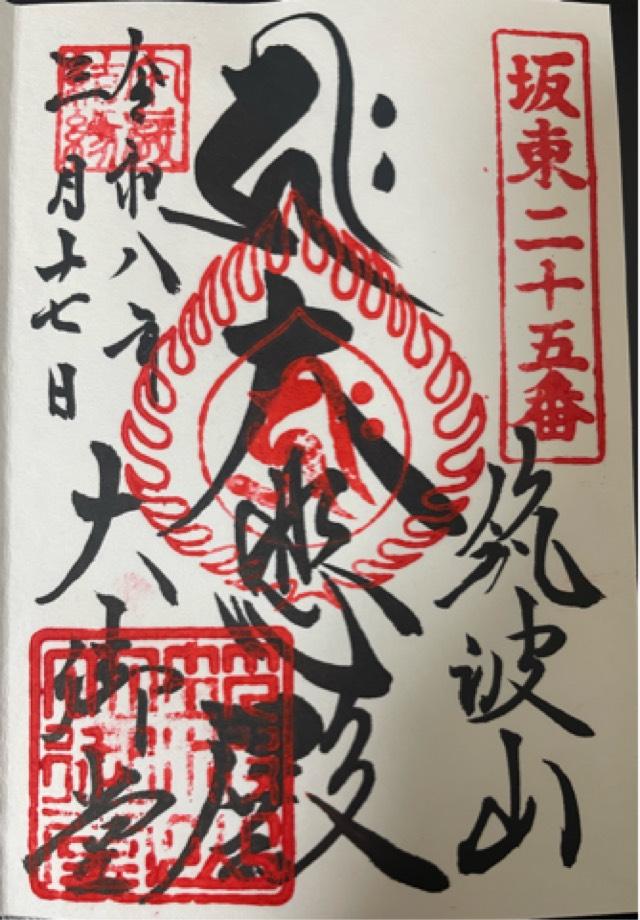 坂東二十五番
筑波山
大悲殿
大御堂
令和八年
三月十七日